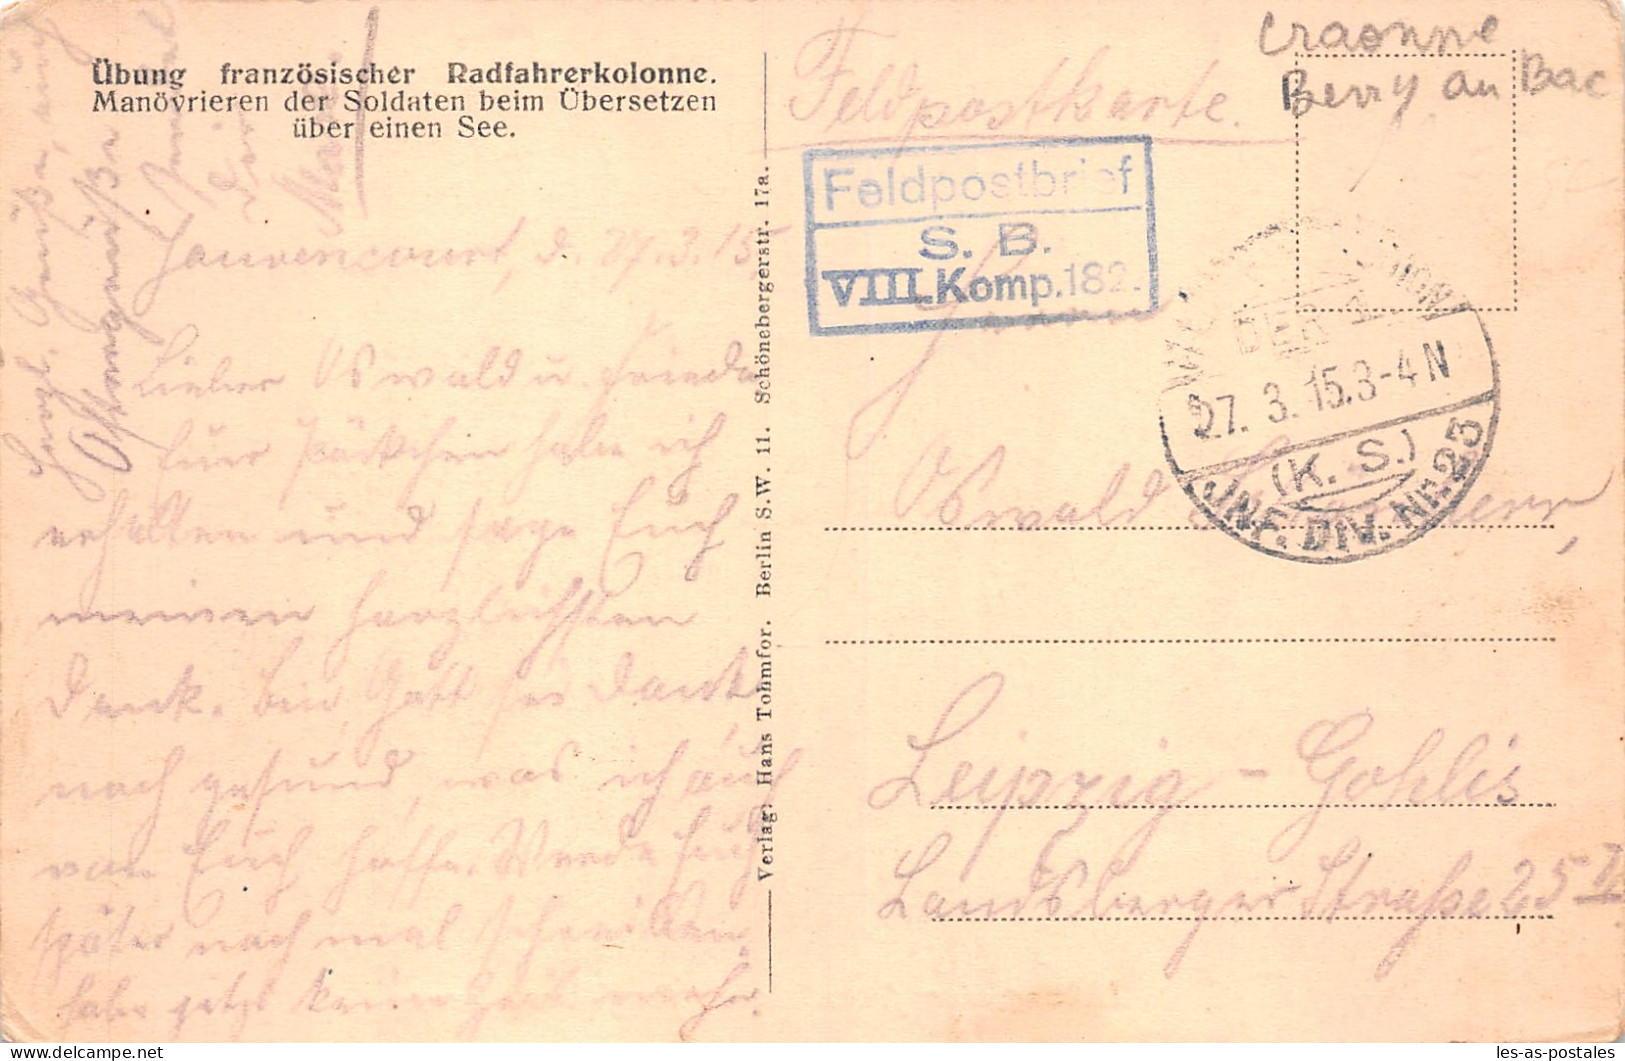 Übung französischer Radfahrerkolonne.
Manövrieren der Soldaten beim Übersetzen
über einen See.
Feldpostkarte.
Craonne
Berry au Bac
Feldpostbrief
S. B.
VIII. Komp. 182.
DER
27. 3. 15. 3-4 N
(K. S.)
INF. DIV. Nr. 23
Herrn
Oswald
Leipzig - Gohlis
Landsberger Straße 25
Verlag: Hans Tohmfor. Berlin S.W. 11. Schönebergerstr. 17a.
d. 27.3.15.
Lieber Oswald u. Frieda
Euer Päckchen habe ich
erhalten und sage Euch
meinen herzlichsten
Dank. Bin, Gott sei Dank
noch gesund, was ich auch
von Euch hoffe. Werde Euch
später noch mal schreiben,
habe jetzt keine Zeit mehr.
les-as-postales